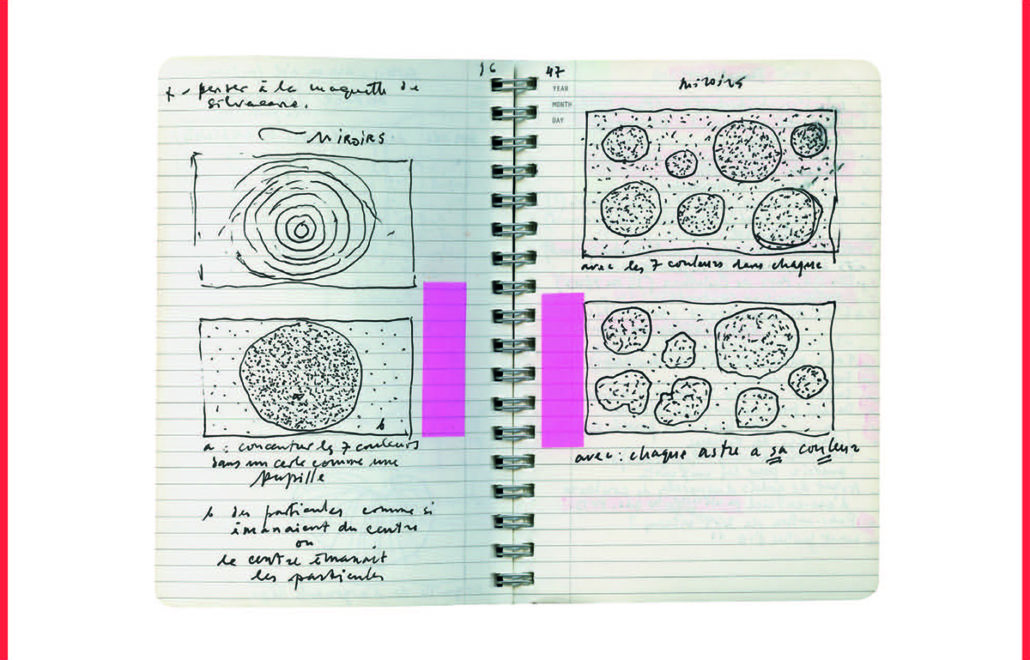 + - penser à la maquette de
silvacane.
MIROIRS
a : concentrer les 7 couleurs
dans un cercle comme une
pupille
b des particules comme si
émanaient du centre
ou
le centre émanait
les particules
47
YEAR
MONTH
DAY
miroirs
avec les 7 couleurs dans chaque
avec : chaque astre a sa couleur